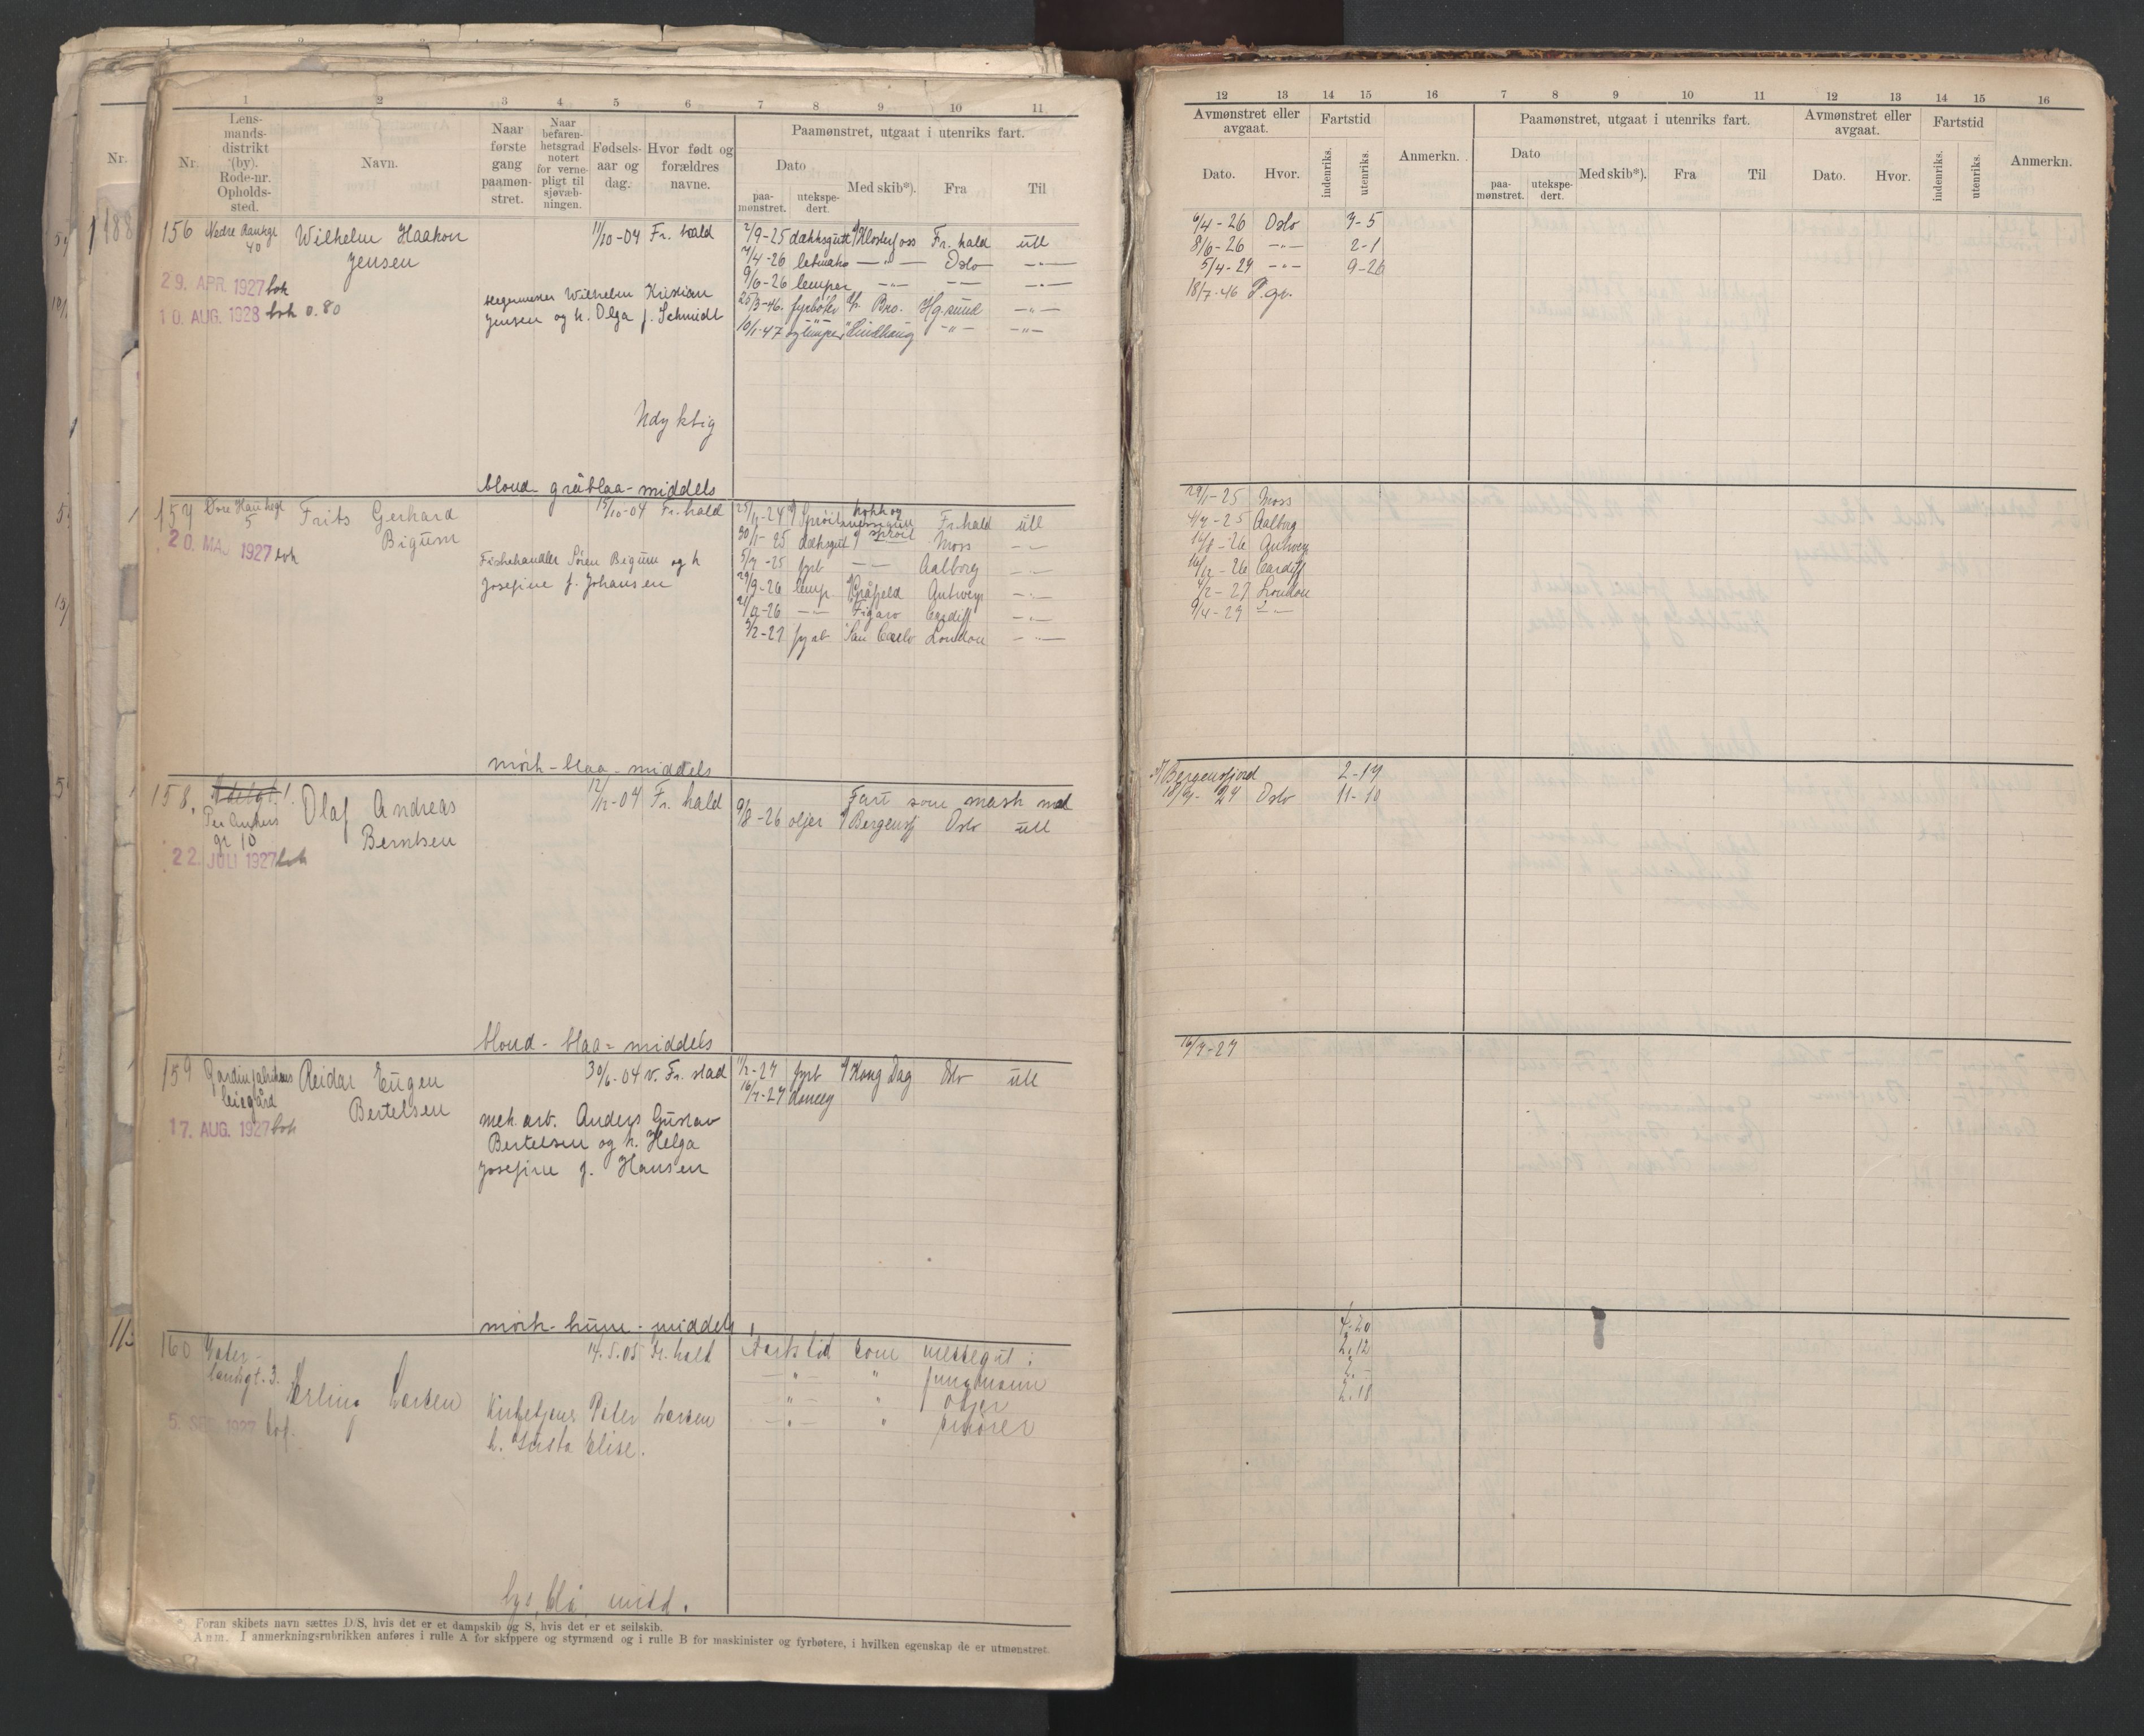 1 2 3 4 5 6 7 8 9 10 11
Nr. Lens-mands-distrikt (by). Rode-nr. Opholds-sted. Navn. Naar første gang paamøn-stret. Naar befaren-hetsgrad notert for verne-pligt til sjøvæb-ningen. Fødsels-aar og dag. Hvor født og forældres navne.
Paamønstret, utgaat i utenriks fart.
Dato Med skib*). Fra Til
paa-mønstret. utekspe-dert.
156 Wilhelm Haakon Jensen 11/10-04 Fr. hald
40
29. APR. 1927 bok
10. AUG. 1928 bok 0.80
Wilhelm Kristian
Jensen og h. Olga f. Schmidt
2/9-25 dækksgutt Klosterfoss Fr. hald utl
7/4-26 letmatr —"— Oslo —"—
9/6-26 lemper —"— —"— —"—
25/3-46. fyrbøter Bro. Hg.sund —"—
10/1-47 lemper Lindhaug —"— —"—
Udyktig
blond gråblaa-middels
157 5 Frits Gerhard Bigum 15/10-04 Fr. hald
20. MAJ 1927 bok
Fiskehandler Søren Bigum og h
Josefine f. Johansen
25/11-24 Sprøit kokk og messegutt Fr.hald utl
30/1-25 dæksgut Sprøit Moss —"—
5/7-25 fyrb —"— Aalborg —"—
29/9-26 lemp. Råfjeld Antwerp —"—
21/12-26 —"— Figaro Cardiff —"—
5/2-27 fyrb San Carlo London —"—
mørk-blaa-middels
158. Olaf Andreas Berntsen 12/12-04 Fr. hald
Peder Ankers
gt 10
22. JULI 1927 bok
Fart som mask
9/8-26 oljer Bergensfj Oslo utl
blond-blaa-middels
159 Gardinfabrikens leiegård Reidar Eugen Bertelsen 30/6-04 v. Fr.stad
17. AUG. 1927 bok
mek. arb. Anders Gustav
Bertelsen og h. Helga
Josefine f. Hansen
11/2-27 fyrb Kong Dag Oslo utl
16/7-27 donkey
mørk-brune-middels
160 Vaterlandsgt. 3. Erling Larsen 14.5.05 Fr. hald
5. SEP. 1927 bok.
Kirketjener Peter Larsen
h. Gusta Elise.
Fartstid som messegut:
—"— " jungmann
—"— " oljer
—"— " smører
lys, blå, midd.
*) Foran skibets navn sættes D/S, hvis det er et dampskib og S, hvis det er et seilskib.
Anm. I anmerkningsrubrikken anføres i rulle A for skippere og styrmænd og i rulle B for maskinister og fyrbøtere, i hvilken egenskap de er utmønstret.
12 13 14 15 16 7 8 9 10 11 12 13 14 15 16
Avmønstret eller avgaat. Fartstid Anmerkn. Paamønstret, utgaat i utenriks fart. Avmønstret eller avgaat. Fartstid Anmerkn.
Dato. Hvor. indenriks. utenriks. Dato paa-mønstret. utekspe-dert. Med skib*). Fra Til Dato. Hvor. indenriks. utenriks.
6/4-26 Oslo 7-5
8/6-26 —"— 2-1
5/4-27 —"— 9-26
18/7-46 P.gr.
29/1-25 Moss
4/7-25 Aalborg
16/8-26 Antwerp
16/12-26 Cardiff
4/2-27 London
9/4-27 —"—
Bergensfjord 2-19
18/7-27 Oslo 11-10
16/7-27
4-20
2.12
2.-
2.18